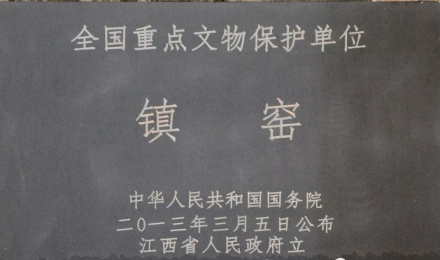 全国重点文物保护单位
镇窑
中华人民共和国国务院
二〇一三年三月五日公布
江西省人民政府立